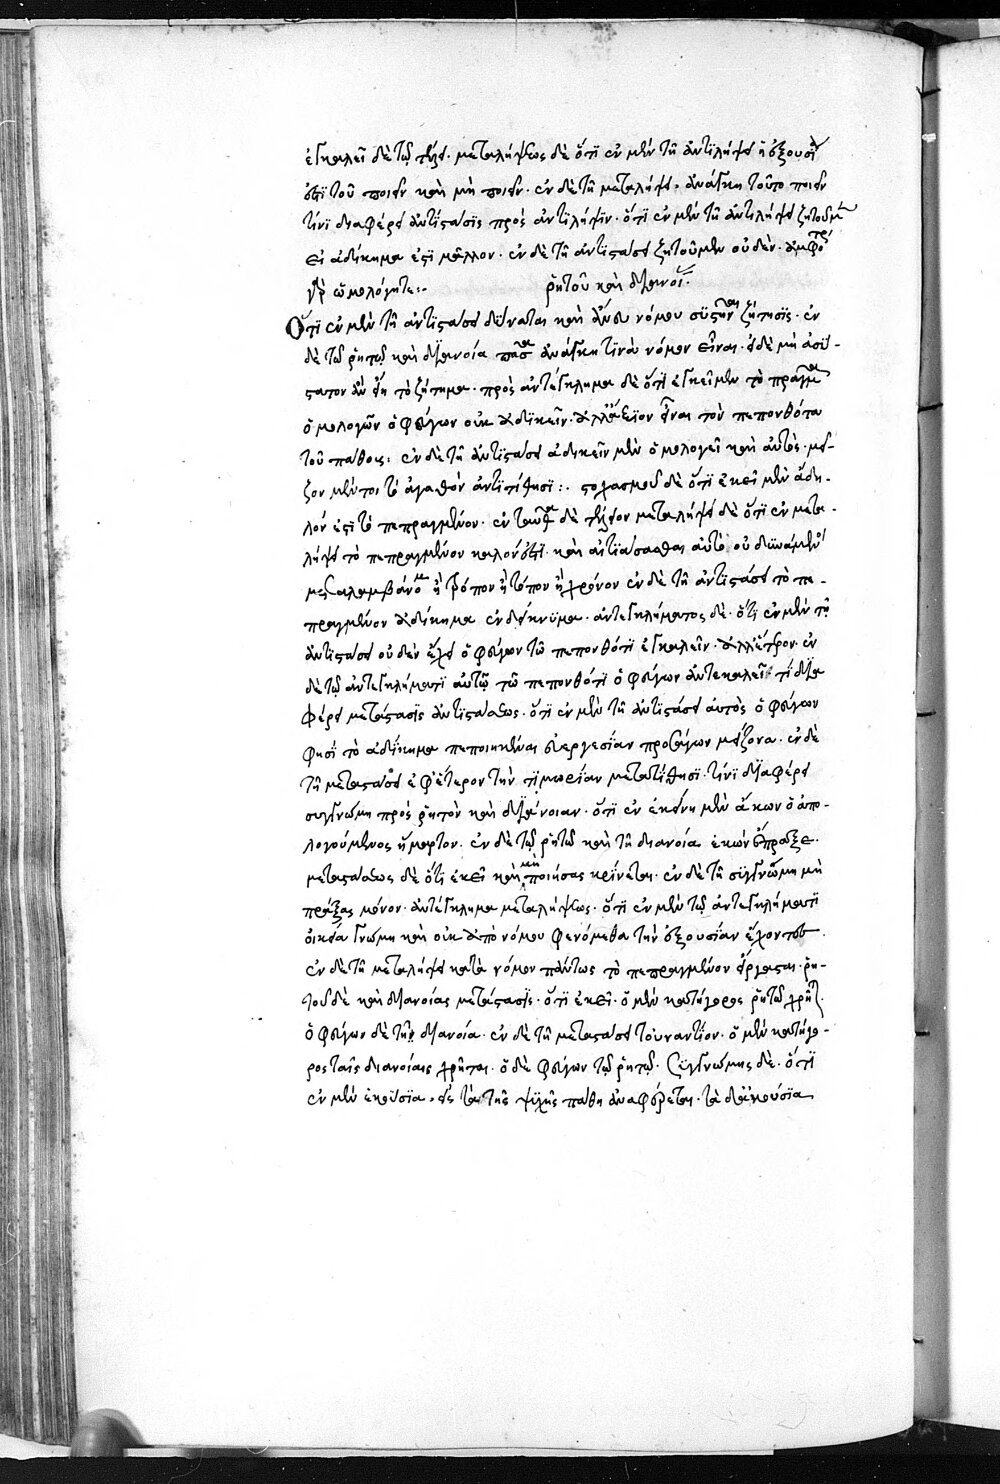 ἐγκαλεῖ δὲ τῷ τέλει. μεταλήψεως δὲ ὅτι ἐν μὲν τῇ ἀντιλήψει ἡ ἐξουσία
ἐστὶ τοῦ ποιεῖν καὶ μὴ ποιεῖν. ἐν δὲ τῇ μεταλήψει, ἀνάγκη τοῦτο ποιεῖν
τίνι διαφέρει ἀντίστασις πρὸς ἀντίληψιν. ὅτι ἐν μὲν τῇ ἀντιλήψει ζητοῦμεν
εἰ ἀδίκημα ἐστὶ μᾶλλον. ἐν δὲ τῇ ἀντιστάσει ζητοῦμεν οὐδέν.
γὰρ ὡμολόγηται:- ῥητοῦ καὶ διανοίας.
Ὅτι ἐν μὲν τῇ ἀντιστάσει δύναται καὶ ἄνευ νόμου συστῆναι ζήτησις. ἐν
δὲ τῷ ῥητῷ καὶ διανοία πᾶσα ἀνάγκη τινὰ νόμον εἶναι. εἰ δὲ μὴ ἀσύ-
στατον ἂν εἴη τὸ ζήτημα. πρὸς ἀντέγκλημα δὲ ὅτι ἐκεῖ μὲν τὸ πρᾶγμα
ὁμολογῶν ὁ φεύγων οὐκ ἀδικεῖν. ἀλλ' ἄξιον εἶναι τὸν πεπονθότα
τοῦ πάθους: ἐν δὲ τῇ ἀντιστάσει ἀδικεῖν μὲν ὁμολογεῖ καὶ αὐτὸς. μεῖ-
ζον μέντοι τὸ ἀγαθὸν ἀντιτίθησι:. στοχασμοῦ δὲ ὅτι ἐκεῖ μὲν ἄδη-
λόν ἐστι τὸ πεπραγμένον. ἐν ταύτῃ δὲ μεταλήψει δὲ ὅτι ἐν μετα-
λήψει τὸ πεπραγμένον καλόν ἐστι. καὶ αἰτιάσασθαι αὐτὸ οὐ δυνάμενοι
μεταλαμβάνομεν ἢ τρόπον ἢ τόπον ἢ χρόνον ἐν δὲ τῇ ἀντιστάσει τὸ πε-
πραγμένον ἀδίκημα ἐνδείκνυμεν. ἀντεγκλήματος δὲ. ὅτι ἐν μὲν τῇ
ἀντιστάσει οὐδὲν ἔχει ὁ φεύγων τῷ πεπονθότι ἐγκαλεῖν. ἀλλ' ἕτερον. ἐν
δὲ τῷ ἀντεγκλήματι αὐτῷ τῷ πεπονθότι ὁ φεύγων ἀντεγκαλεῖ. τί δια
φέρει μετάστασις ἀντιστάσεως. ὅτι ἐν μὲν τῇ ἀντιστάσει αὐτὸς ὁ φεύγων
φησὶ τὸ ἀδίκημα πεποιηκέναι εὐεργεσίαν προβάλων μείζονα. ἐν δὲ
τῇ μεταστάσει ἐφ' ἕτερον τὴν τιμωρίαν μετατίθησι. τίνι διαφέρει
συγγνώμη πρὸς ῥητὸν καὶ διάνοιαν. ὅτι ἐν ἐκείνῃ μὲν ἄκων ὁ ἀπο-
λογούμενος ἥμαρτον. ἐν δὲ τῷ ῥητῷ καὶ τῇ διανοία ἑκὼν ἔπραξε.
μεταστάσεως δὲ ὅτι ἐκεῖ καὶ μὴ ποιήσας κρίνεται. ἐν δὲ τῇ συγγνώμῃ μὴ
πράξας μόνον. ἀντέγκλημα μεταλήψεως. ὅτι ἐν μὲν τῷ ἀντεγκλήματι
οἰκεία γνώμῃ καὶ οὐκ ἀπὸ νόμου φαινόμεθα τὴν ἐξουσίαν ἔχοντες.
ἐν δὲ τῇ μεταλήψει κατὰ νόμον πάντως τὸ πεπραγμένον εἴργασται. ῥη-
τοῦ δὲ καὶ διανοίας μετάστασις. ὅτι ἐκεῖ. ὁ μὲν κατήγορος ῥητῷ χρῆται.
ὁ φεύγων δὲ τῇ διανοία. ἐν δὲ τῇ μεταστάσει τοὐναντίον. ὁ μὲν κατήγο-
ρος ταῖς διανοίαις χρῆται. ὁ δὲ φεύγων τῷ ῥητῷ. Συγγνώμης δὲ. ὅτι
ἐν μὲν ἑκούσια. εἰς τὰ τῆς ψυχῆς πάθη ἀναφέρεται. τὰ δὲ ἀκούσια